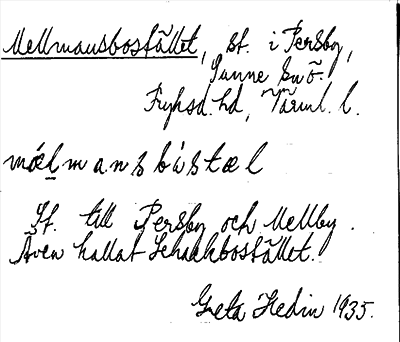 Mellmansbostället, st. i Persby,
Sunne snö.
Fryksd. hd, Värml. l.
mǽl̲mansbústæl
St. till Persby och Mellby.
Även kallat Schackbostället.
Greta Hedin 1935.